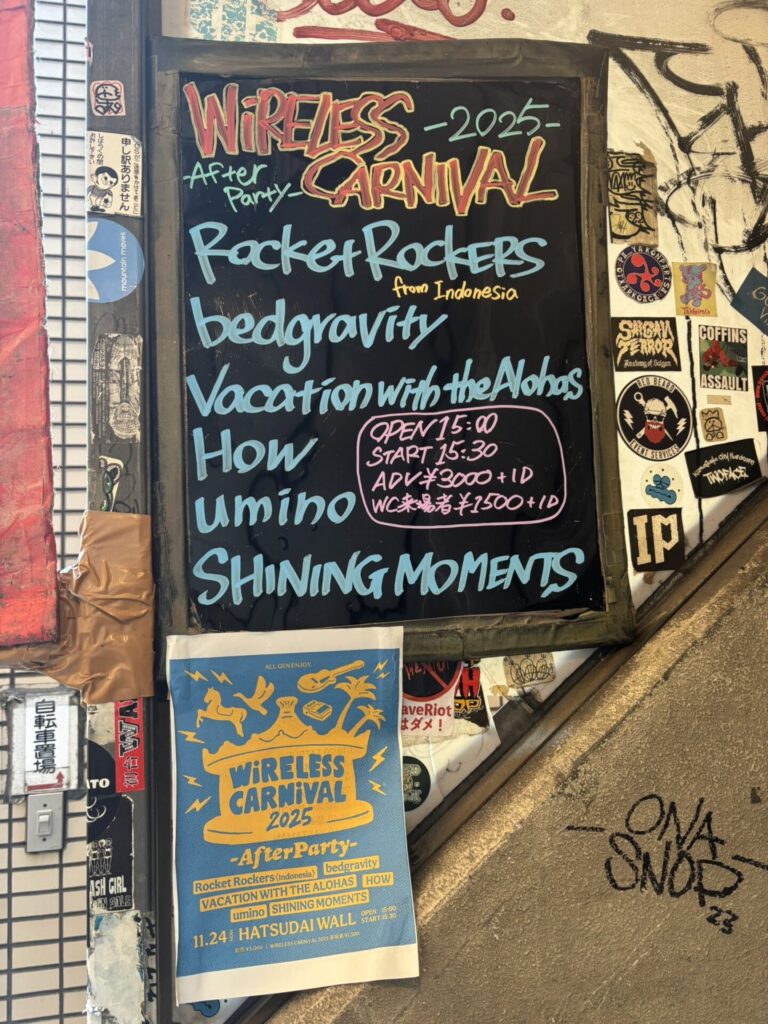 WiRELESS
-2025-
-After
Party-
CARNIVAL
Rocket Rockers
from Indonesia
bedgravity
Vacation with the Alohas
How
OPEN 15:00
START 15:30
ADV ¥3000 + 1D
WC来場者 ¥1500 + 1D
umino
SHINING MOMENTS
ALL GEN ENJOY.
WiRELESS
CARNiVAL
2025
-AfterParty-
Rocket Rockers (Indonesia) bedgravity
VACATION WITH THE ALOHAS HOW
umino SHINING MOMENTS
11.24 HATSUDAI WALL OPEN 15:00
START 15:30
申し訳ありません
mountain moves
自転車置場
ASH GIRL
SAIGON
TERROR
COFFINS
ASSAULT
RED BEARD
EVENT SERVICES
TWOFACE
IP
aveRiot
はダメ！
ONA
SNOP
23